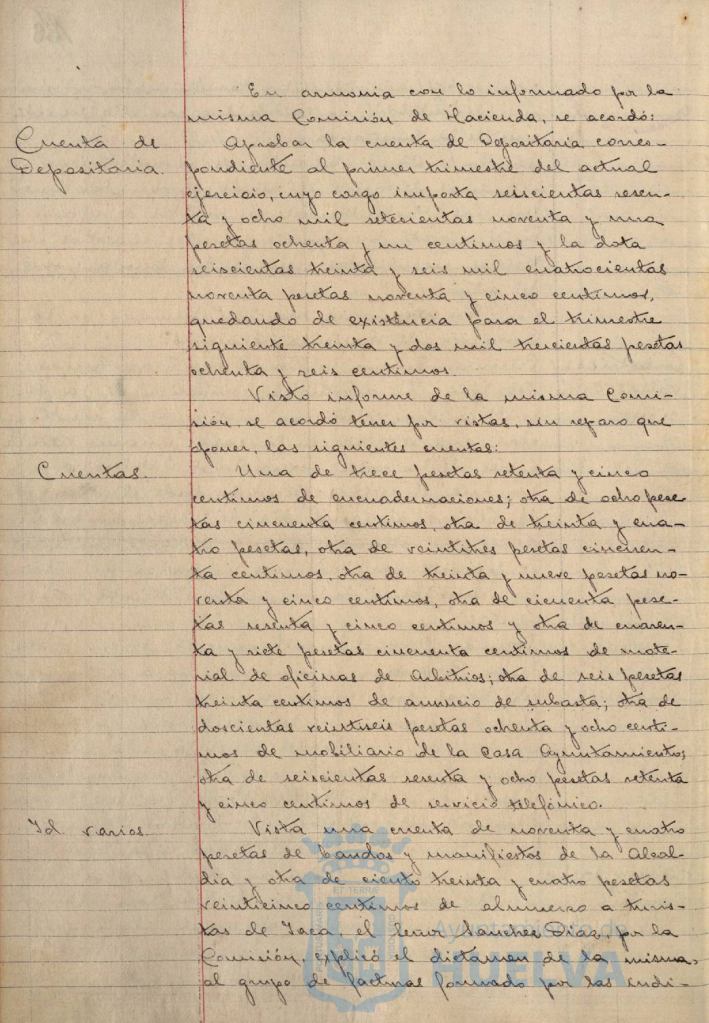 En armonia con lo informado por la
misma Comisión de Hacienda, se acordó:
Cuenta de
Depositaria.
Aprobar la cuenta de Depositaria corres-
pondiente al primer trimestre del actual
ejercicio, cuyo cargo importa seiscientas sesen-
ta y ocho mil setecientas noventa y una
pesetas ochenta y un centimos y la data
seiscientas treinta y seis mil cuatrocientas
noventa pesetas noventa y cinco centimos,
quedando de existencia para el trimestre
siguiente treinta y dos mil trescientas pesetas
ochenta y seis centimos.
Visto informe de la misma Comi-
sión, se acordó tener por vistas, sin reparo que
oponer, las siguientes cuentas:
Cuentas.
Una de trece pesetas setenta y cinco
centimos de encuadernaciones; otra de ocho pese
tas cincuenta centimos, otra de treinta y cua-
tro pesetas, otra de veintitres pesetas cincuen-
ta centimos, otra de treinta y nueve pesetas no-
venta y cinco centimos, otra de cicuenta pese-
tas sesenta y cinco centimos y otra de cuaren-
ta y siete pesetas cincuenta centimos de mate-
rial de oficinas de Arbitrios; otra de seis pesetas
treinta centimos de anuncio de subasta; otra de
doscientas veintiseis pesetas ochenta y ocho centi-
mos de mobiliario de la Casa Ayuntamiento;
otra de seiscientas sesenta y ocho pesetas setenta
y cinco centimos de servicio telefónico.
Id varios.
Vista una cuenta de noventa y cuatro
pesetas de bandos y manifiestos de la Alcal-
dia y otra de ciento treinta y cuatro pesetas
veinticinco centimos de almuerzo a turis-
tas de Jaca, el Señor Sanchez Diaz, por la
Comisión, explicó el dictamen de la misma,
al grupo de facturas formado por las indi-
Ayuntamiento de
HUELVA